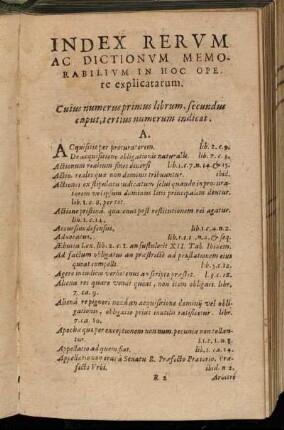 INDEX RERVM
AC DICTIONVM MEMO-
RABILIVM IN HOC OPE-
re explicatarum.
Cuius numerus primus librum, secundus
caput, tertius numerum indicat.
A.
ACquisitio per procuratorem. lib. 2. c. 9.
De acquisitione obligationis naturalis. lib. 7. c. 9.
Actionum realium fines diversi
Actio. reales quæ non dominis tribuuntur. ibid.
Actionis ex stipulatu iudicatum solui quando in procura-
torem uel ipsum dominum litis principalem dentur.
lib. 1. c. 8. per tot.
Actione pristina quæ causa post restitutionem rei agatur.
lib. 1. c. 14.
Accursius defensus. lib. 1. c. 4. n. 2.
Aduocatus.
Æbutia Lex. lib. 2. c. 2. an sustulerit XII. Tab. Ibidem.
Ad factum obligatus an præstando ad præstationem eius
queat compelli. lib. 5. c. 12.
Agere in iudicio verbotenus an scriptis præstet.
Aliena res quare vendi queat, non item obligari. libr.
7. ca. 9.
Alienâ re pignori nondum acquisitione dominij vel obli-
gationis, obligatio prius inutilis ratificetur. libr.
7. ca. 10.
Apocha quæ per exceptionem non num. pecuniæ non tollan-
tur.
Appellatio ad quem fiat. lib. 1. ca. 14.
Appellationes erat à Senatu R. Præfecto Prætorio. Præ-
fecto Vrbi. ibid. n 2.
R 2